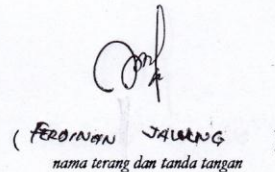 ( FERDINAN JALUNG
nama terang dan tanda tangan